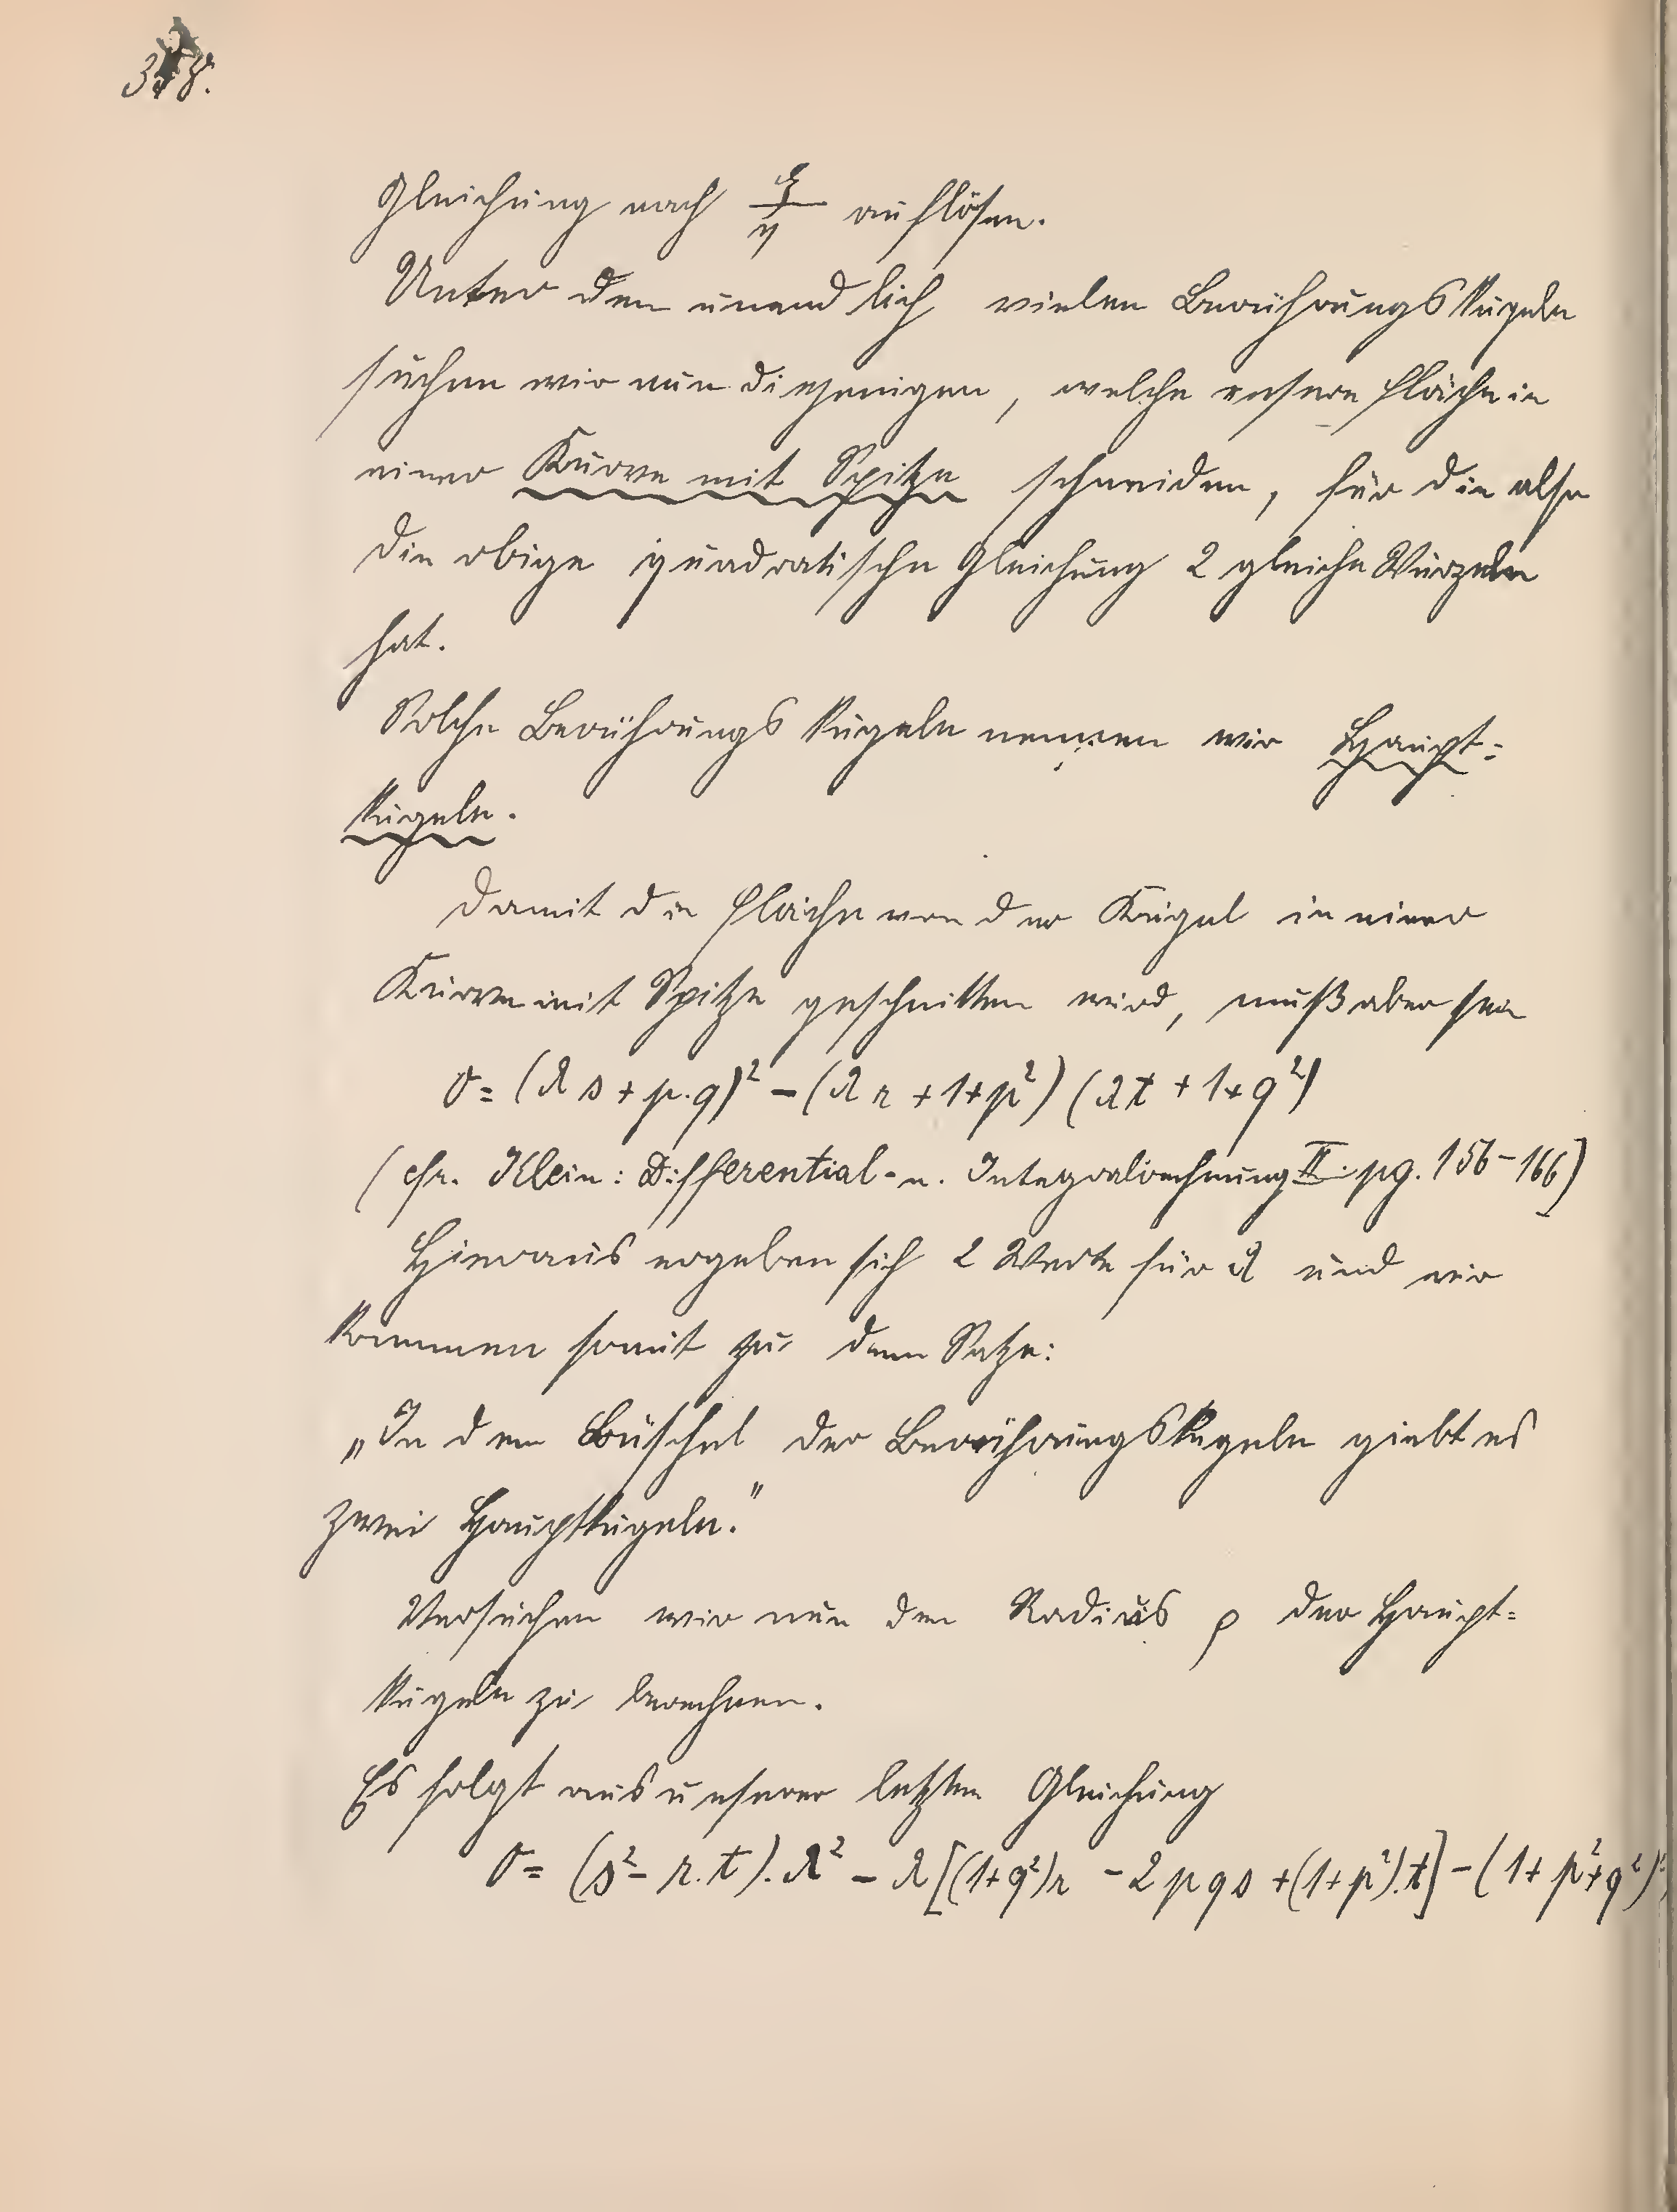 Gleichung nach ξ/η auflösen.
Unter den unendlich vielen Berührungskugeln
suchen wir nun diejenigen, welche unsere Fläche in
einer Kurve mit Spitze schneiden, für die also
die obige quadratische Gleichung 2 gleiche Wurzeln
hat.
Solche Berührungskugeln nennen wir Haupt-
kugeln.
Damit die Fläche von der Kugel in einer
Kurve mit Spitze geschnitten wird, muß aber sein
0 = (λs + p.q)² − (λr + 1 + p²) (λt + 1 + q²)
(cfr. Klein: Differential- u. Integralrechnung II. pg. 156–166)
Hieraus ergeben sich 2 Werte für λ und wir
kommen somit zu dem Satze:
„In dem Büschel der Berührungskugeln giebt es
zwei Hauptkugeln."
Versuchen wir nun den Radius ρ der Haupt-
kugeln zu berechnen.
Es folgt aus unserer letzten Gleichung
0 = (s² − r.t).λ² − λ[(1+q²)r − 2pqs + (1+p²).t] − (1 + p² + q²)